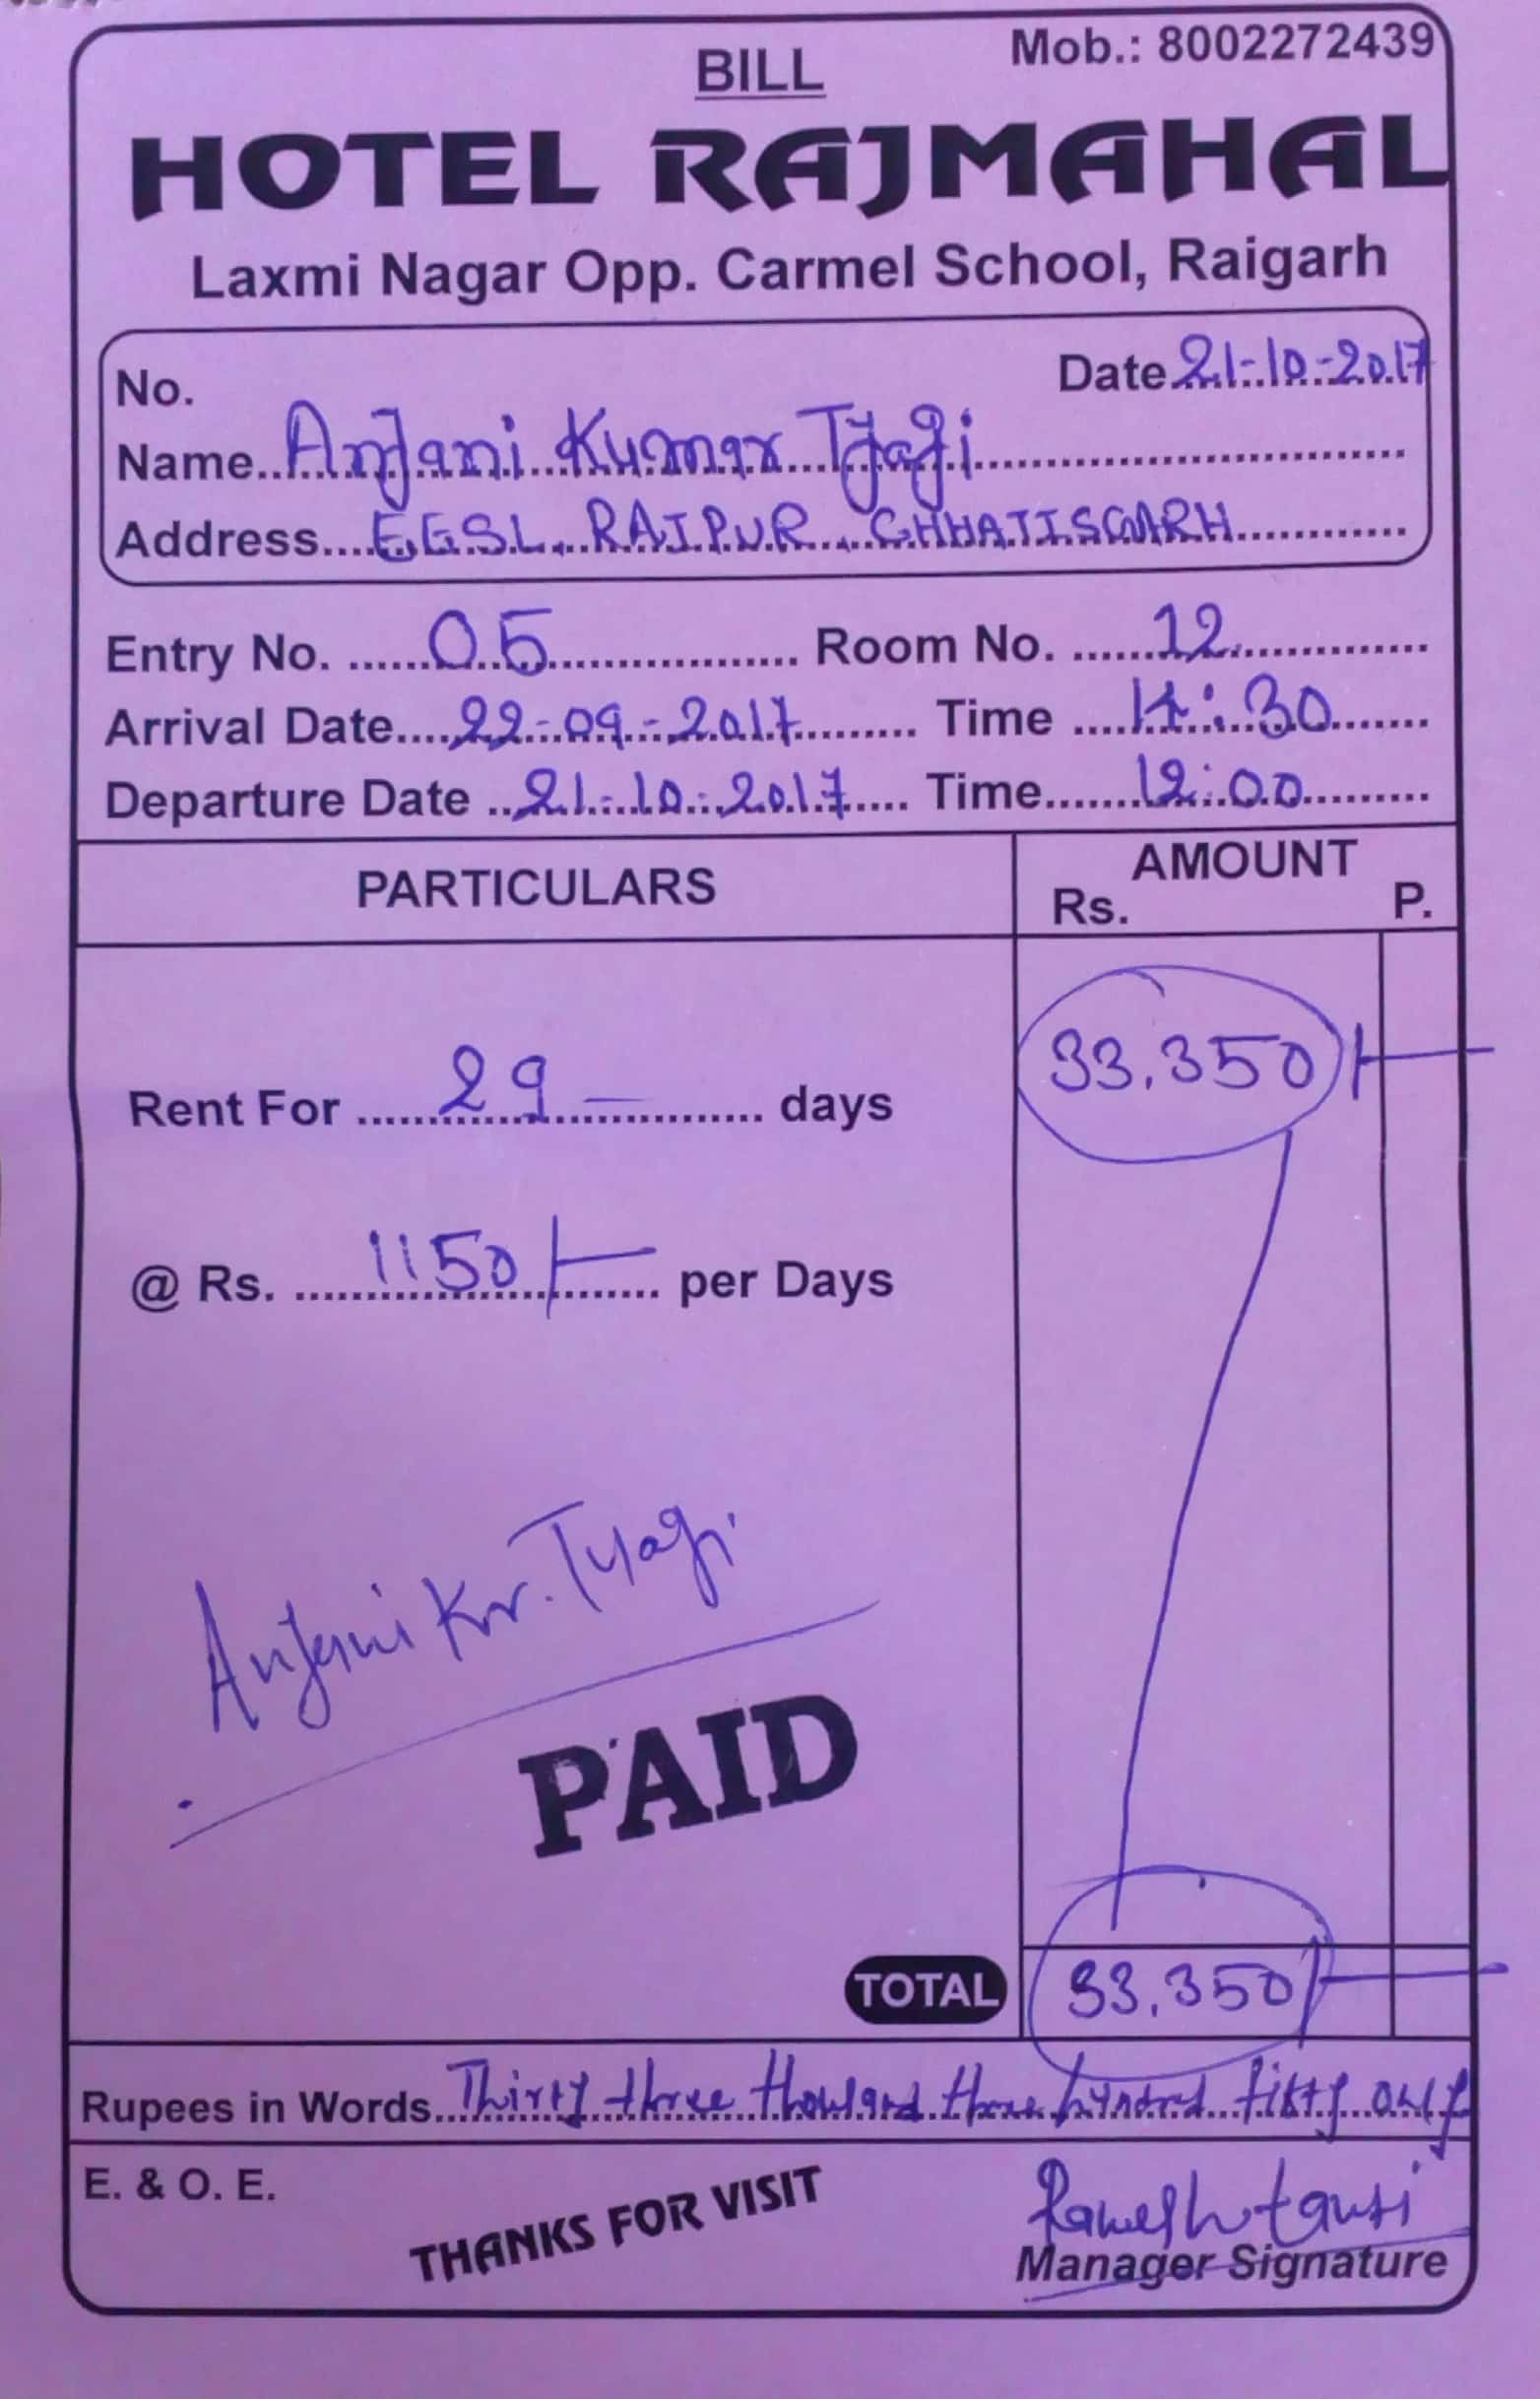 BILL
Mob.: 8002272439
HOTEL RAJMAHAL
Laxmi Nagar Opp. Carmel School, Raigarh
No. Date 21-10-2017
Name Anjani Kumar Tyagi
Address EESL, RAIPUR, CHHATISGARH
Entry No. 05 Room No. 12
Arrival Date 22-09-2017 Time :30
Departure Date 21-10-2017 Time 12:00
PARTICULARS AMOUNT
Rs. P.
33,350/-
Rent For 29 days
@ Rs. 1150/- per Days
Anjani Kr. Tyagi
PAID
TOTAL 33,350/-
Rupees in Words Thirty three thousand three hundred fifty only
E. & O. E.
THANKS FOR VISIT
Ramesh
Manager Signature